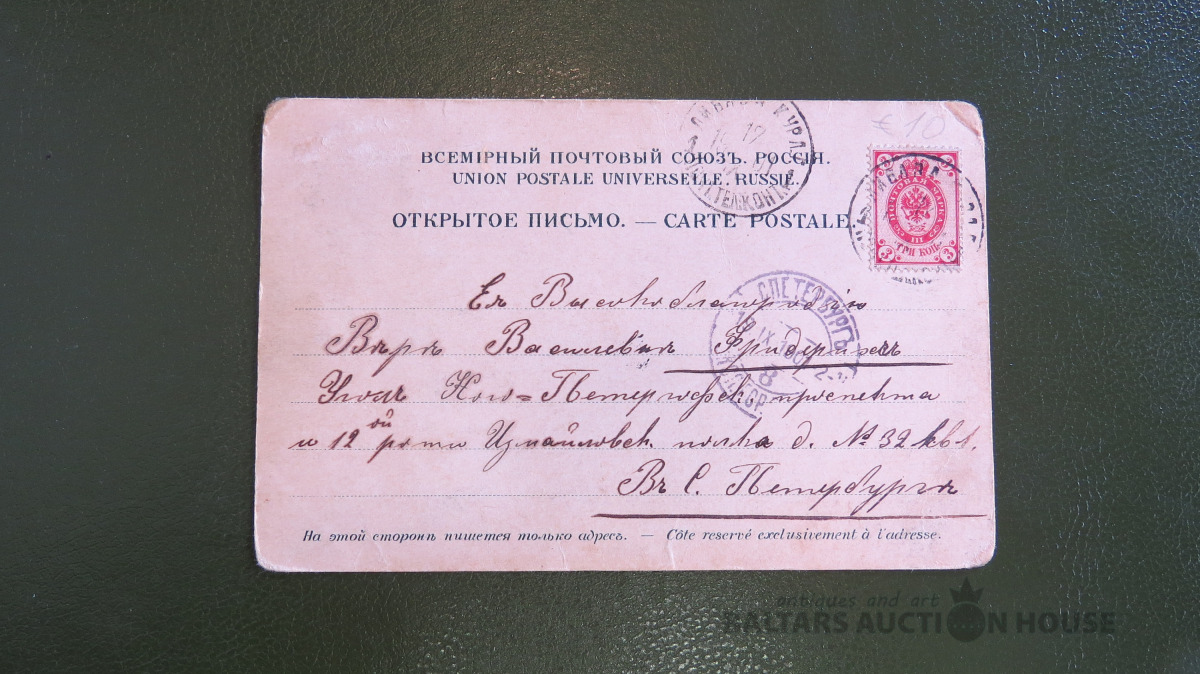 € 10
ВСЕМІРНЫЙ ПОЧТОВЫЙ СОЮЗЪ. РОССІЯ.
UNION POSTALE UNIVERSELLE. RUSSIE.
ОТКРЫТОЕ ПИСЬМО. — CARTE POSTALE
ПОЧТОВАЯ МАРКА
III
ТРИ КОП.
3 3
Ея Высокоблагородію
Вѣрѣ Васильевнѣ Фридерихсъ
Уголъ Ново=Петергофск. проспекта
и 12ой роты Измайловск. полка д. № 32 кв 1.
Въ С. Петербургѣ
С ПЕТЕРБУРГЪ
На этой сторонѣ пишется только адресъ. — Côte reservé exclusivement à l'adresse.
antiques and art
BALTARS AUCTION HOUSE